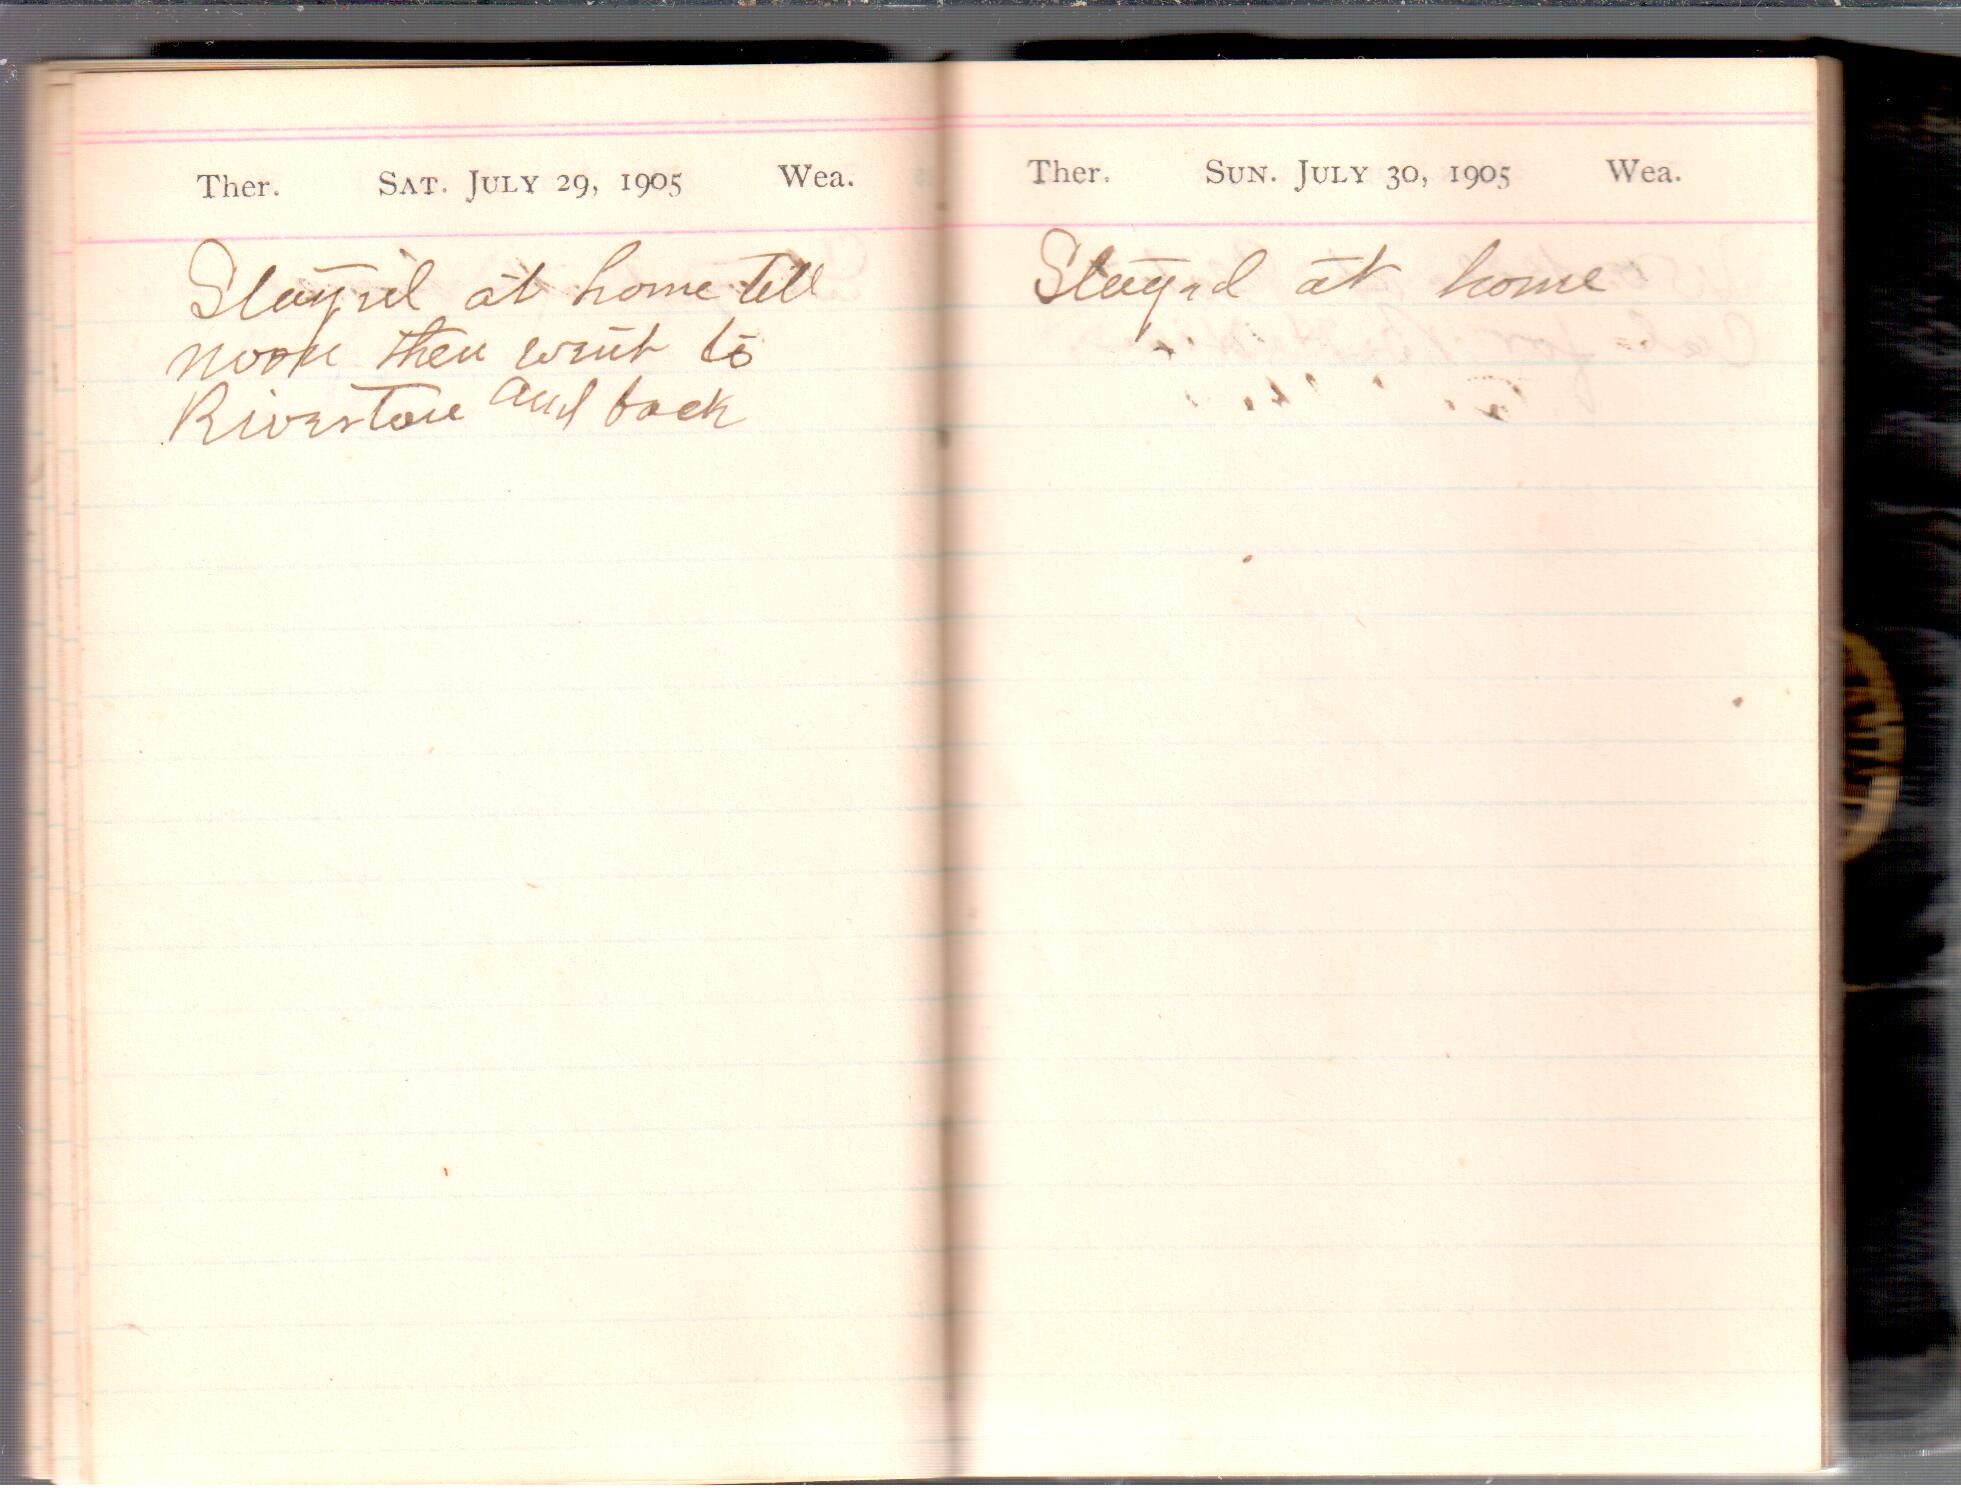 Ther. Sat. July 29, 1905 Wea.
Stayed at home till
noon then went to
Riverton and back
Ther. Sun. July 30, 1905 Wea.
Stayed at home